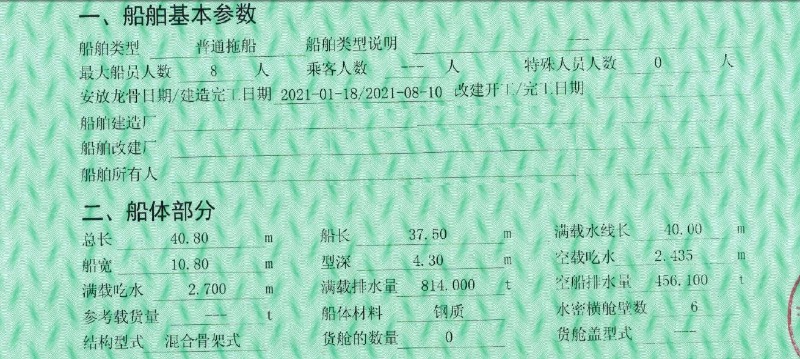 一、船舶基本参数
船舶类型 普通拖船 船舶类型说明 ---
最大船员人数 8 人 乘客人数 --- 人 特殊人员人数 0 人
安放龙骨日期/建造完工日期 2021-01-18/2021-08-10 改建开工/完工日期
船舶建造厂
船舶改建厂
船舶所有人
二、船体部分
总长 40.80 m 船长 37.50 m 满载水线长 40.00 m
船宽 10.80 m 型深 4.30 m 空载吃水 2.435 m
满载吃水 2.700 m 满载排水量 814.000 t 空船排水量 456.100 t
参考载货量 --- t 船体材料 钢质 水密横舱壁数 6
结构型式 混合骨架式 货舱的数量 0 货舱盖型式 ---